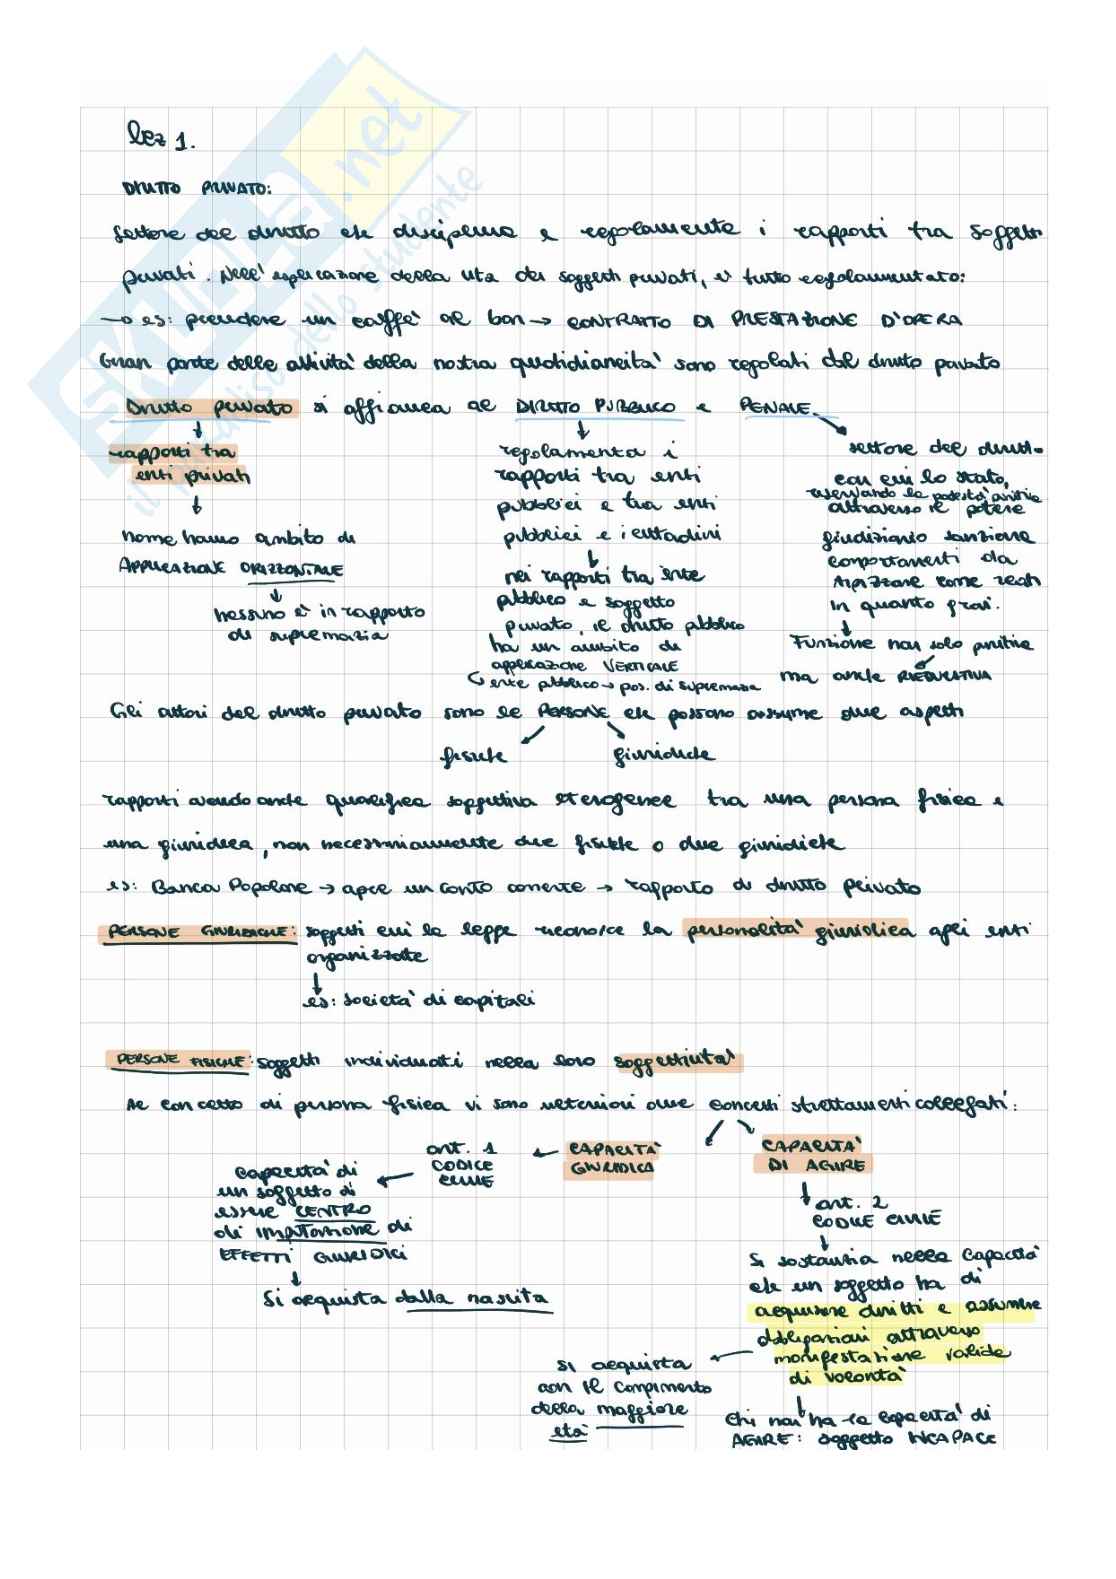 lez 1.
DIRITTO PRIVATO:
settore del diritto che disciplina e regolamenta i rapporti tra soggetti
privati. Nell'esplicazione della vita dei soggetti privati, è tutto regolamentato:
→ es: prendere un caffè al bar → CONTRATTO DI PRESTAZIONE D'OPERA
Gran parte delle attività della nostra quotidianeità sono regolati dal diritto privato
Diritto privato si affianca al DIRITTO PUBBLICO e PENALE.
rapporti tra
enti privati
norme hanno ambito di
APPLICAZIONE ORIZZONTALE
nessuno è in rapporto
di supremazia
regolamenta i
rapporti tra enti
pubblici e tra enti
pubblici e i cittadini
nei rapporti tra ente
pubblico e soggetto
privato, il diritto pubblico
ha un ambito di
applicazione VERTICALE
ente pubblico → pos. di supremazia
settore del diritto
con cui lo stato,
riservando la potestà punitiva
attraverso il potere
giudiziario sanziona
comportamenti da
tipizzare come reati
in quanto gravi.
Funzione non solo punitiva
ma anche RIEDUCATIVA
Gli attori del diritto privato sono le PERSONE che possono assumere due aspetti
fisiche
giuridiche
rapporti avendo anche qualifica soggettiva eterogenee tra una persona fisica e
una giuridica, non necessariamente due fisiche o due giuridiche
es: Banca Popolare → apre un conto corrente → rapporto di diritto privato
PERSONE GIURIDICHE: soggetti cui la legge riconosce la personalità giuridica agli enti
organizzate
es: società di capitali
PERSONE FISICHE: soggetti individuati nella loro soggettività
Al concetto di persona fisica vi sono ulteriori due concetti strettamenti collegati:
CAPACITÀ
GIURIDICA
art. 1
CODICE
CIVILE
capacità di
un soggetto di
essere CENTRO
di IMPUTAZIONE di
EFFETTI GIURIDICI
Si acquista dalla nascita
CAPACITÀ
DI AGIRE
art. 2
CODICE CIVILE
Si sostanzia nella capacità
che un soggetto ha di
acquisire diritti e assumere
obbligazioni attraverso
manifestazione valide
di volontà
si acquista
con il compimento
della maggiore
età
Chi non ha la capacità di
AGIRE: soggetto INCAPACE
SKUOLA.net
il paradiso dello studente